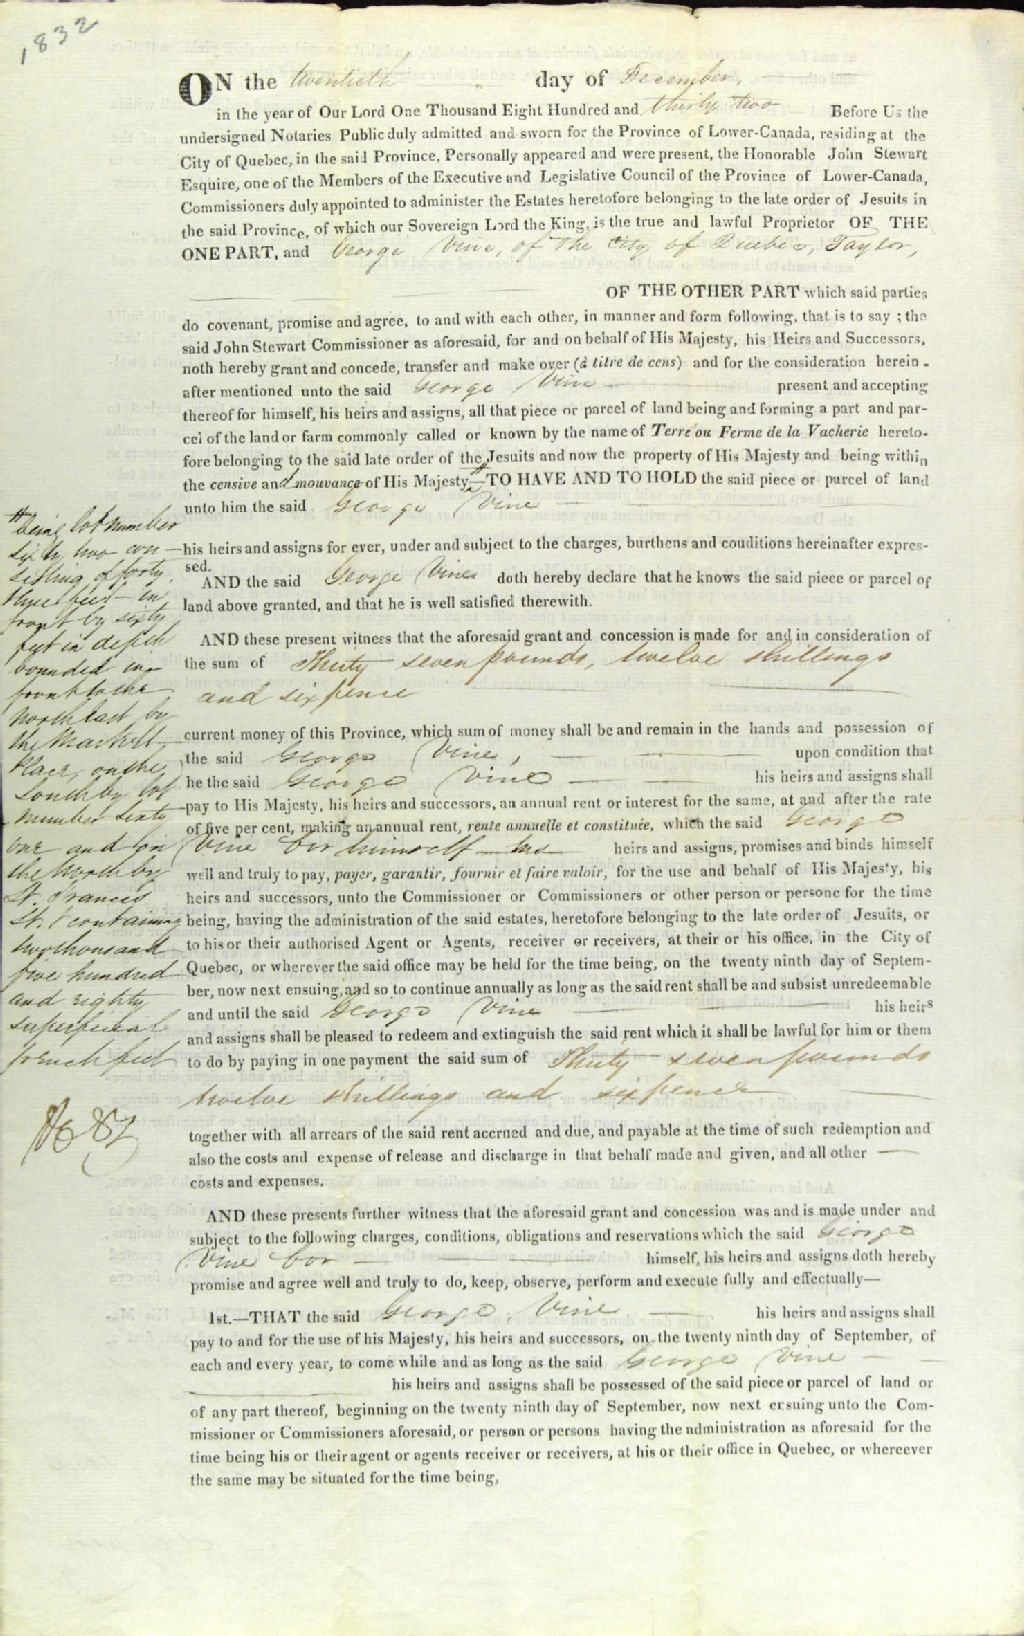 1832
ON the twentieth day of December,
in the year of Our Lord One Thousand Eight Hundred and thirty two Before Us the
undersigned Notaries Public duly admitted and sworn for the Province of Lower-Canada, residing at the
City of Quebec, in the said Province, Personally appeared and were present, the Honorable John Stewart
Esquire, one of the Members of the Executive and Legislative Council of the Province of Lower-Canada,
Commissioners duly appointed to administer the Estates heretofore belonging to the late order of Jesuits in
the said Province, of which our Sovereign Lord the King, is the true and lawful Proprietor OF THE
ONE PART, and George Vine, of the City of Quebec, Taylor,
OF THE OTHER PART which said parties
do covenant, promise and agree, to and with each other, in manner and form following, that is to say ; the
said John Stewart Commissioner as aforesaid, for and on behalf of His Majesty, his Heirs and Successors,
noth hereby grant and concede, transfer and make over (à titre de cens) and for the consideration herein-
after mentioned unto the said George Vine present and accepting
thereof for himself, his heirs and assigns, all that piece or parcel of land being and forming a part and par-
cel of the land or farm commonly called or known by the name of Terre ou Ferme de la Vacherie hereto-
fore belonging to the said late order of the Jesuits and now the property of His Majesty and being within
the censive and mouvance of His Majesty—TO HAVE AND TO HOLD the said piece or parcel of land
unto him the said George Vine
his heirs and assigns for ever, under and subject to the charges, burthens and conditions hereinafter expres-
sed.
AND the said George Vine doth hereby declare that he knows the said piece or parcel of
land above granted, and that he is well satisfied therewith.
AND these present witness that the aforesaid grant and concession is made for and in consideration of
the sum of Thirty seven pounds, twelve shillings
and sixpence
current money of this Province, which sum of money shall be and remain in the hands and possession of
the said George Vine, upon condition that
he the said George Vine his heirs and assigns shall
pay to His Majesty, his heirs and successors, an annual rent or interest for the same, at and after the rate
of five per cent, making an annual rent, rente annuelle et constituée, which the said George
Vine for himself his heirs and assigns, promises and binds himself
well and truly to pay, payer, garantir, fournir et faire valoir, for the use and behalf of His Majesty, his
heirs and successors, unto the Commissioner or Commissioners or other person or persone for the time
being, having the administration of the said estates, heretofore belonging to the late order of Jesuits, or
to his or their authorised Agent or Agents, receiver or receivers, at their or his office, in the City of
Quebec, or wherever the said office may be held for the time being, on the twenty ninth day of Septem-
ber, now next ensuing, and so to continue annually as long as the said rent shall be and subsist unredeemable
and until the said George Vine his heirs
and assigns shall be pleased to redeem and extinguish the said rent which it shall be lawful for him or them
to do by paying in one payment the said sum of Thirty seven pounds
twelve shillings and sixpence
together with all arrears of the said rent accrued and due, and payable at the time of such redemption and
also the costs and expense of release and discharge in that behalf made and given, and all other
costs and expenses.
AND these presents further witness that the aforesaid grant and concession was and is made under and
subject to the following charges, conditions, obligations and reservations which the said George
Vine for himself, his heirs and assigns doth hereby
promise and agree well and truly to do, keep, observe, perform and execute fully and effectually—
1st.—THAT the said George Vine his heirs and assigns shall
pay to and for the use of his Majesty, his heirs and successors, on the twenty ninth day of September, of
each and every year, to come while and as long as the said George Vine
his heirs and assigns shall be possessed of the said piece or parcel of land or
of any part thereof, beginning on the twenty ninth day of September, now next ersuing unto the Com-
missioner or Commissioners aforesaid, or person or persons having the administration as aforesaid for the
time being his or their agent or agents receiver or receivers, at his or their office in Quebec, or whereever
the same may be situated for the time being,
being lot number
sixty two con-
sisting of forty
three feet in
front by sixty
feet in depth
bounded in
front to the
North East by
the Market
Place, on the
South by lot
number sixty
one and on
the North by
St. Francis
St. containing
two thousand
five hundred
and eighty
superficial
french feet